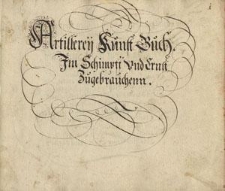 Artillerey Kunst Buch.
Im Schimpff Vnd Ernst
Zugebrauchenn.